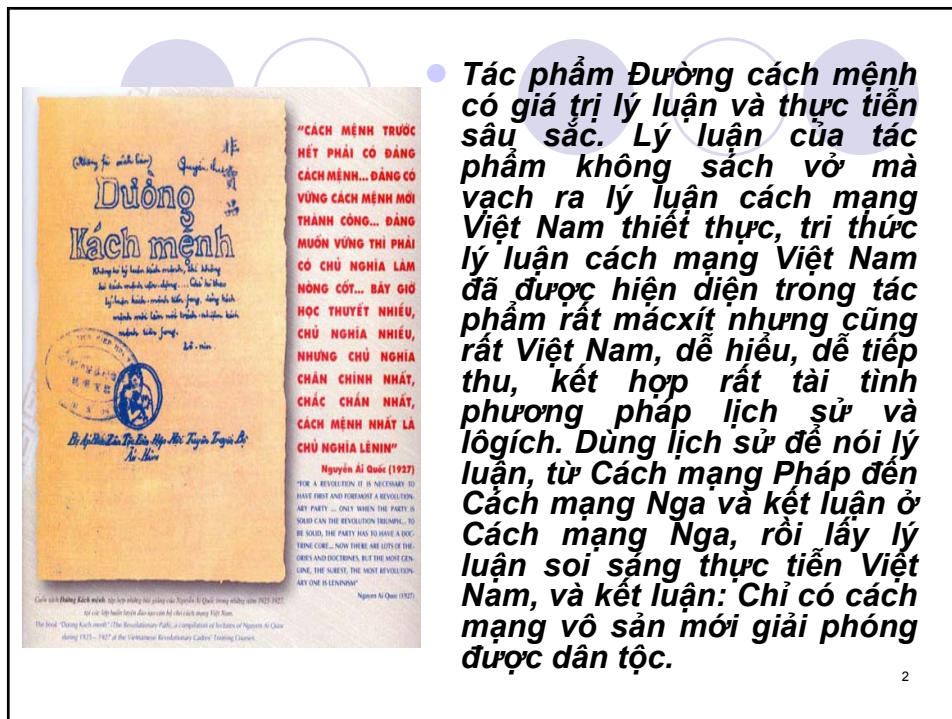 Đường
Kách mệnh
Lê-nin
"CÁCH MỆNH TRƯỚC
HẾT PHẢI CÓ ĐẢNG
CÁCH MỆNH... ĐẢNG CÓ
VỮNG CÁCH MỆNH MỚI
THÀNH CÔNG... ĐẢNG
MUỐN VỮNG THÌ PHẢI
CÓ CHỦ NGHĨA LÀM
NÒNG CỐT... BÂY GIỜ
HỌC THUYẾT NHIỀU,
CHỦ NGHĨA NHIỀU,
NHƯNG CHỦ NGHĨA
CHÂN CHÍNH NHẤT,
CHẮC CHẮN NHẤT,
CÁCH MỆNH NHẤT LÀ
CHỦ NGHĨA LÊNIN"
Nguyễn Ái Quốc (1927)
"FOR A REVOLUTION IT IS NECESSARY TO
HAVE FIRST AND FOREMOST A REVOLUTION-
ARY PARTY ... ONLY WHEN THE PARTY IS
SOLID CAN THE REVOLUTION TRIUMPH... TO
BE SOLID, THE PARTY HAS TO HAVE A DOC-
TRINE CORE... NOW THERE ARE LOTS OF THE-
ORIES AND DOCTRINES, BUT THE MOST GEN-
UINE, THE SUREST, THE MOST REVOLUTION-
ARY ONE IS LENINISM"
Nguyen Ai Quoc (1927)
Cuốn sách Đường Kách mệnh, tập hợp những bài giảng của Nguyễn Ái Quốc trong những năm 1925-1927,
tại các lớp huấn luyện đào tạo cán bộ cho cách mạng Việt Nam.
The book "Duong Kach menh" (The Revolutionary Path), a compilation of lectures of Nguyen Ai Quoc
during 1925 - 1927 at the Vietnamese Revolutionary Cadres' Training Courses.
Tác phẩm Đường cách mệnh
có giá trị lý luận và thực tiễn
sâu sắc. Lý luận của tác
phẩm không sách vở mà
vạch ra lý luận cách mạng
Việt Nam thiết thực, tri thức
lý luận cách mạng Việt Nam
đã được hiện diện trong tác
phẩm rất mácxít nhưng cũng
rất Việt Nam, dễ hiểu, dễ tiếp
thu, kết hợp rất tài tình
phương pháp lịch sử và
lôgích. Dùng lịch sử để nói lý
luận, từ Cách mạng Pháp đến
Cách mạng Nga và kết luận ở
Cách mạng Nga, rồi lấy lý
luận soi sáng thực tiễn Việt
Nam, và kết luận: Chỉ có cách
mạng vô sản mới giải phóng
được dân tộc.
2